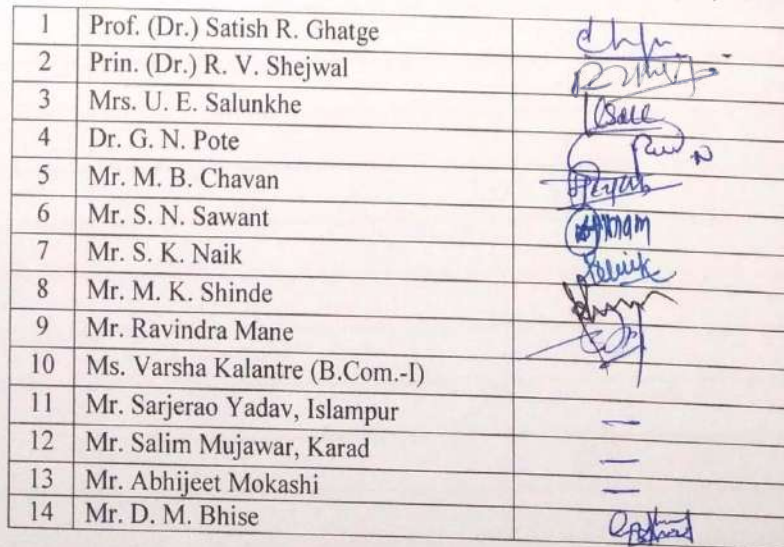 1 Prof. (Dr.) Satish R. Ghatge
2 Prin. (Dr.) R. V. Shejwal
3 Mrs. U. E. Salunkhe
4 Dr. G. N. Pote
5 Mr. M. B. Chavan
6 Mr. S. N. Sawant
7 Mr. S. K. Naik
8 Mr. M. K. Shinde
9 Mr. Ravindra Mane
10 Ms. Varsha Kalantre (B.Com.-I)
11 Mr. Sarjerao Yadav, Islampur —
12 Mr. Salim Mujawar, Karad —
13 Mr. Abhijeet Mokashi —
14 Mr. D. M. Bhise